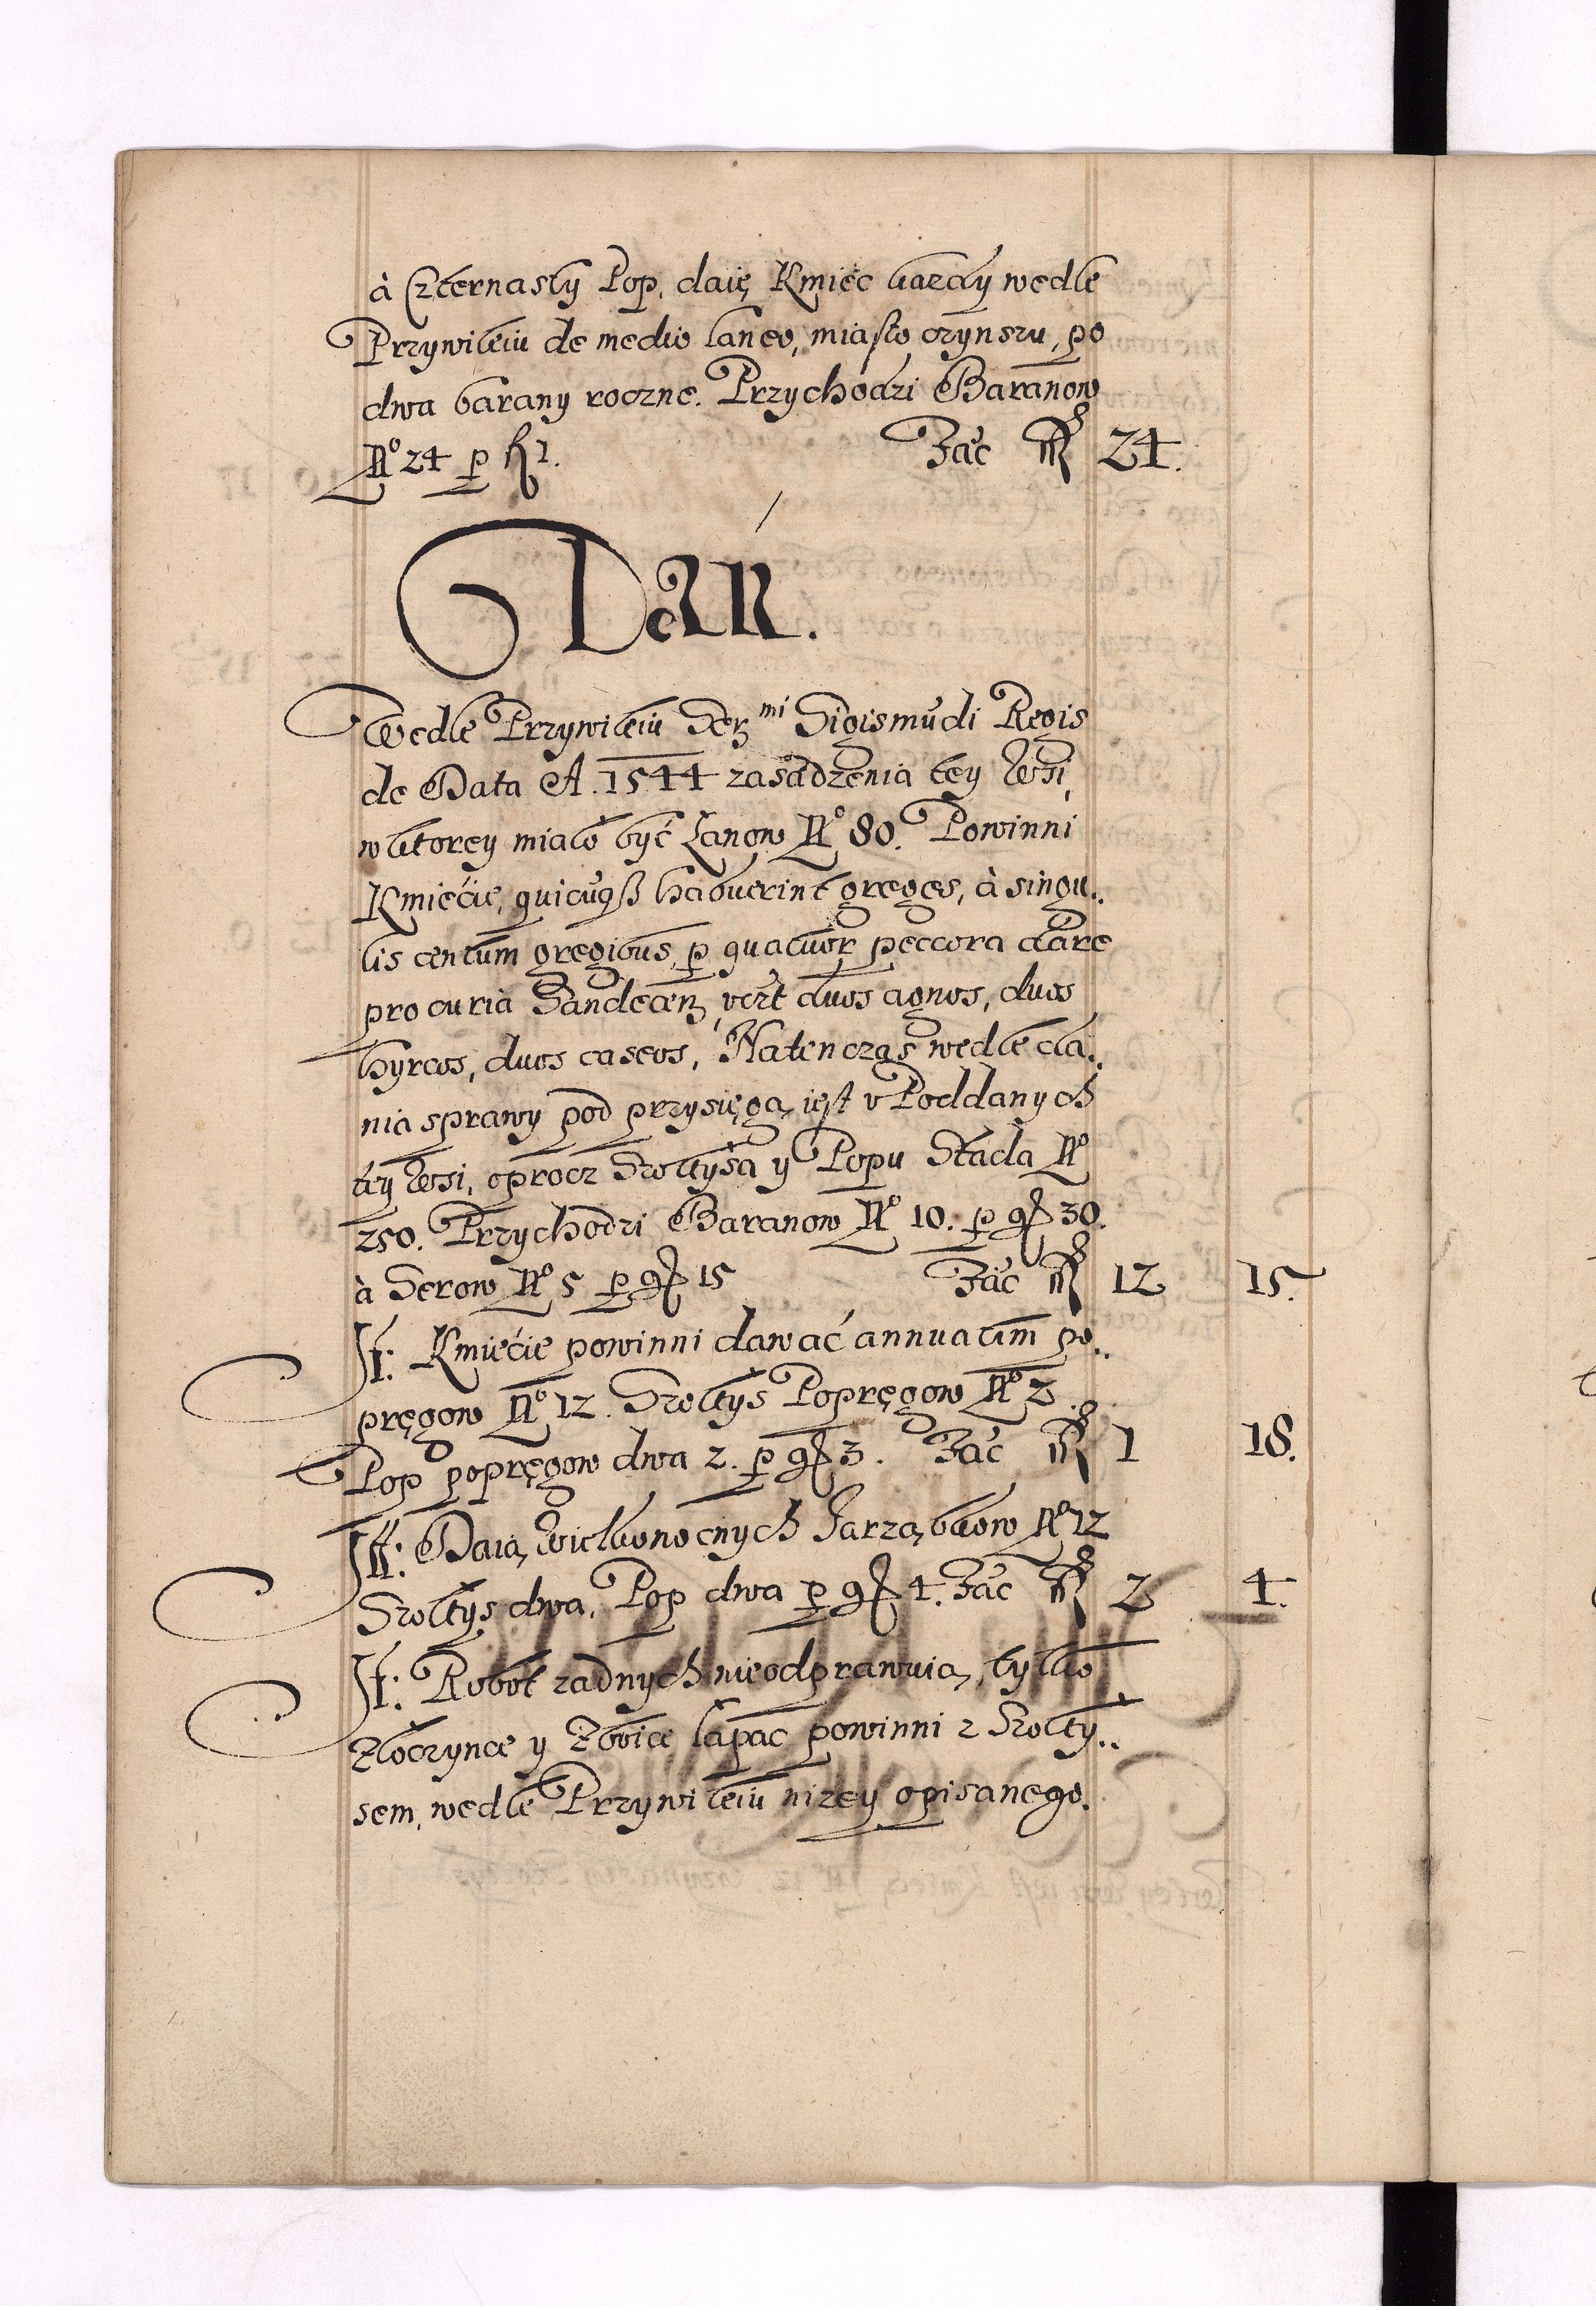 à Czternasty Pop, daię Kmieć kazdy wedle
Przywileiu de medio laneo, miasto czynszu, po
dwa barany roczne. Przychodzi Baranow
No 24 p fl 1. Zác fl 24.
DaŃ.
Wedle Przywileiu Sermi Sigismūdi Regis
de Data A. 1544 zasadzenia tey Wsi,
w ktorey miało być Łanow No 80. Powinni
Kmiećie, quicūqß habuerint greges, à singu..
lis centum gregibus, p quatuor peccora dare
pro curia Sandecen, vczt duos agnos, duos
hyrcos, duos caseos, Natenczas wedle cza..
nia sprawy pod przysięgą iest v Poddanych
tey Wsi, oprocz Szołtysa y Popu Stada No
250. Przychodzi Baranow No 10. p gß 30.
à Serow No 5 p gß 15 Zác fl 12 15.
It: Kmiećie powinni dawać annuatim po..
pręgow No 12. Szołtys Popręgow No 2
Pop popręgow dwa 2. p gß 3. Zác fl 1 18.
It: Daią Wielkonocnych Jarząbkow No 12
Szołtys dwa, Pop dwa p gß 4. Zác fl 2 4.
It: Robot zadnych nieodprawuią, tylko
Złoczynce y Zboice łapac powinni z Szołty..
sem, wedle Przywileiu nizey opisanego.